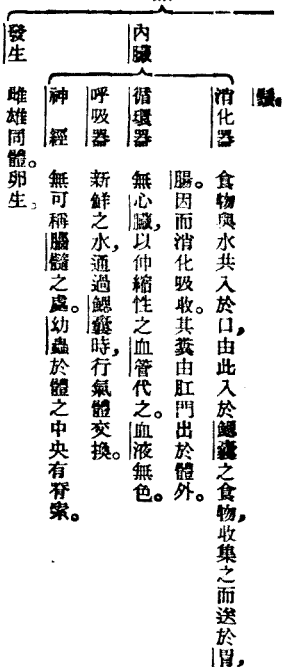 鬚。
內臟
消化器 食物與水共入於口,由此入於鰓囊之食物,收集之而送於胃,
腸。因而消化吸收。其糞由肛門出於體外。
循環器 無心臟,以伸縮性之血管代之。血液無色。
呼吸器 新鮮之水,通過鰓囊時,行氣體交換。
神經 無可稱腦髓之處。幼蟲於體之中央有脊索。
發生 雌雄同體。卵生。